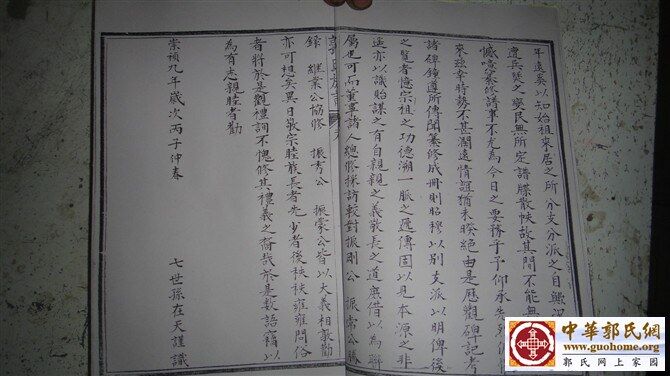 年遠奚以知始祖來居之所分支分派之自與
遭兵燹之變民無所定譜牒散帙故其間不能無
憾噫纂修譜事不尤為今日之要務乎予仰承先
來雖幸時勢不甚濶遠情誼猶未暌絕由是歷觀碑記考
諸碑鐘遵所傳聞纂修成冊則昭穆以別支派以明俾後
之覽者憶宗祖之功德溯一脈之遞傳固以見本源之非
遠亦以識貽謀之有自親親之義敬長之道無借以為聯
屬也可而董事諸人總修採訪較對振剛公 振常公
錄 維業公協修 振秀公 振蒙公皆以大義相敦勸
亦可想矣異日敬宗睦族長者先少者後秩秩雍雍問俗
者將於是觀禮詞不愧修其禮義之裔哉於是數語竊以
為有志親睦者勸
崇禎九年歲次丙子仲春
七世孫在天謹識
中華郭氏網
www.guohome.org
郭氏网上家园